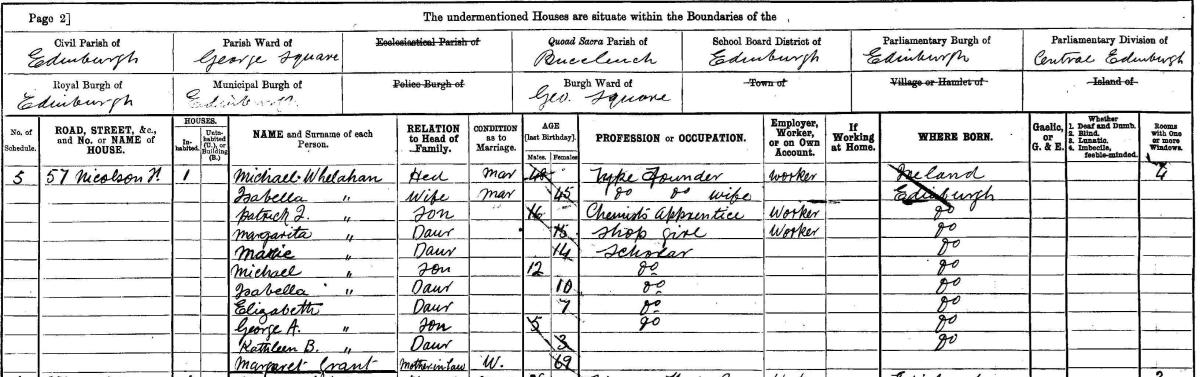 Page 2] The undermentioned Houses are situate within the Boundaries of the
Civil Parish of Edinburgh
Parish Ward of George Square
Ecclesiastical Parish of
Quoad Sacra Parish of Buccleuch
School Board District of Edinburgh
Parliamentary Burgh of Edinburgh
Parliamentary Division of Central Edinburgh
Royal Burgh of Edinburgh
Municipal Burgh of Edinburgh
Police Burgh of
Burgh Ward of Geo. Square
Town of
Village or Hamlet of
Island of
No. of Schedule.
ROAD, STREET, &c., and No. or NAME of HOUSE.
HOUSES.
In-habited.
Unin-habited (U.), or Building (B.)
NAME and Surname of each Person.
RELATION to Head of Family.
CONDITION as to Marriage.
AGE [last Birthday].
Males. Females
PROFESSION or OCCUPATION.
Employer, Worker, or on Own Account.
If Working at Home.
WHERE BORN.
Gaelic, or G. & E.
Whether 1. Deaf and Dumb. 2. Blind. 3. Lunatic. 4. Imbecile, feeble-minded.
Rooms with One or more Windows.
5 57 Nicolson St. 1 Michael Whelahan Hed Mar 48 Type Founder Worker Ireland 4
Isabella " Wife Mar 45 Do Do Wife Edinburgh
Patrick J. " Son 16 Chemists Apprentice Worker Do
Margarita " Daur 15 Shop Girl Worker Do
" Daur 14 Scholar Do
Michael " Son 12 Do Do
Isabella " Daur 10 Do Do
Elizabeth Daur 7 Do Do
George A. " Son 5 Do Do
Kathleen B. " Daur 3 Do
Margaret Grant Mother in Law W. 69